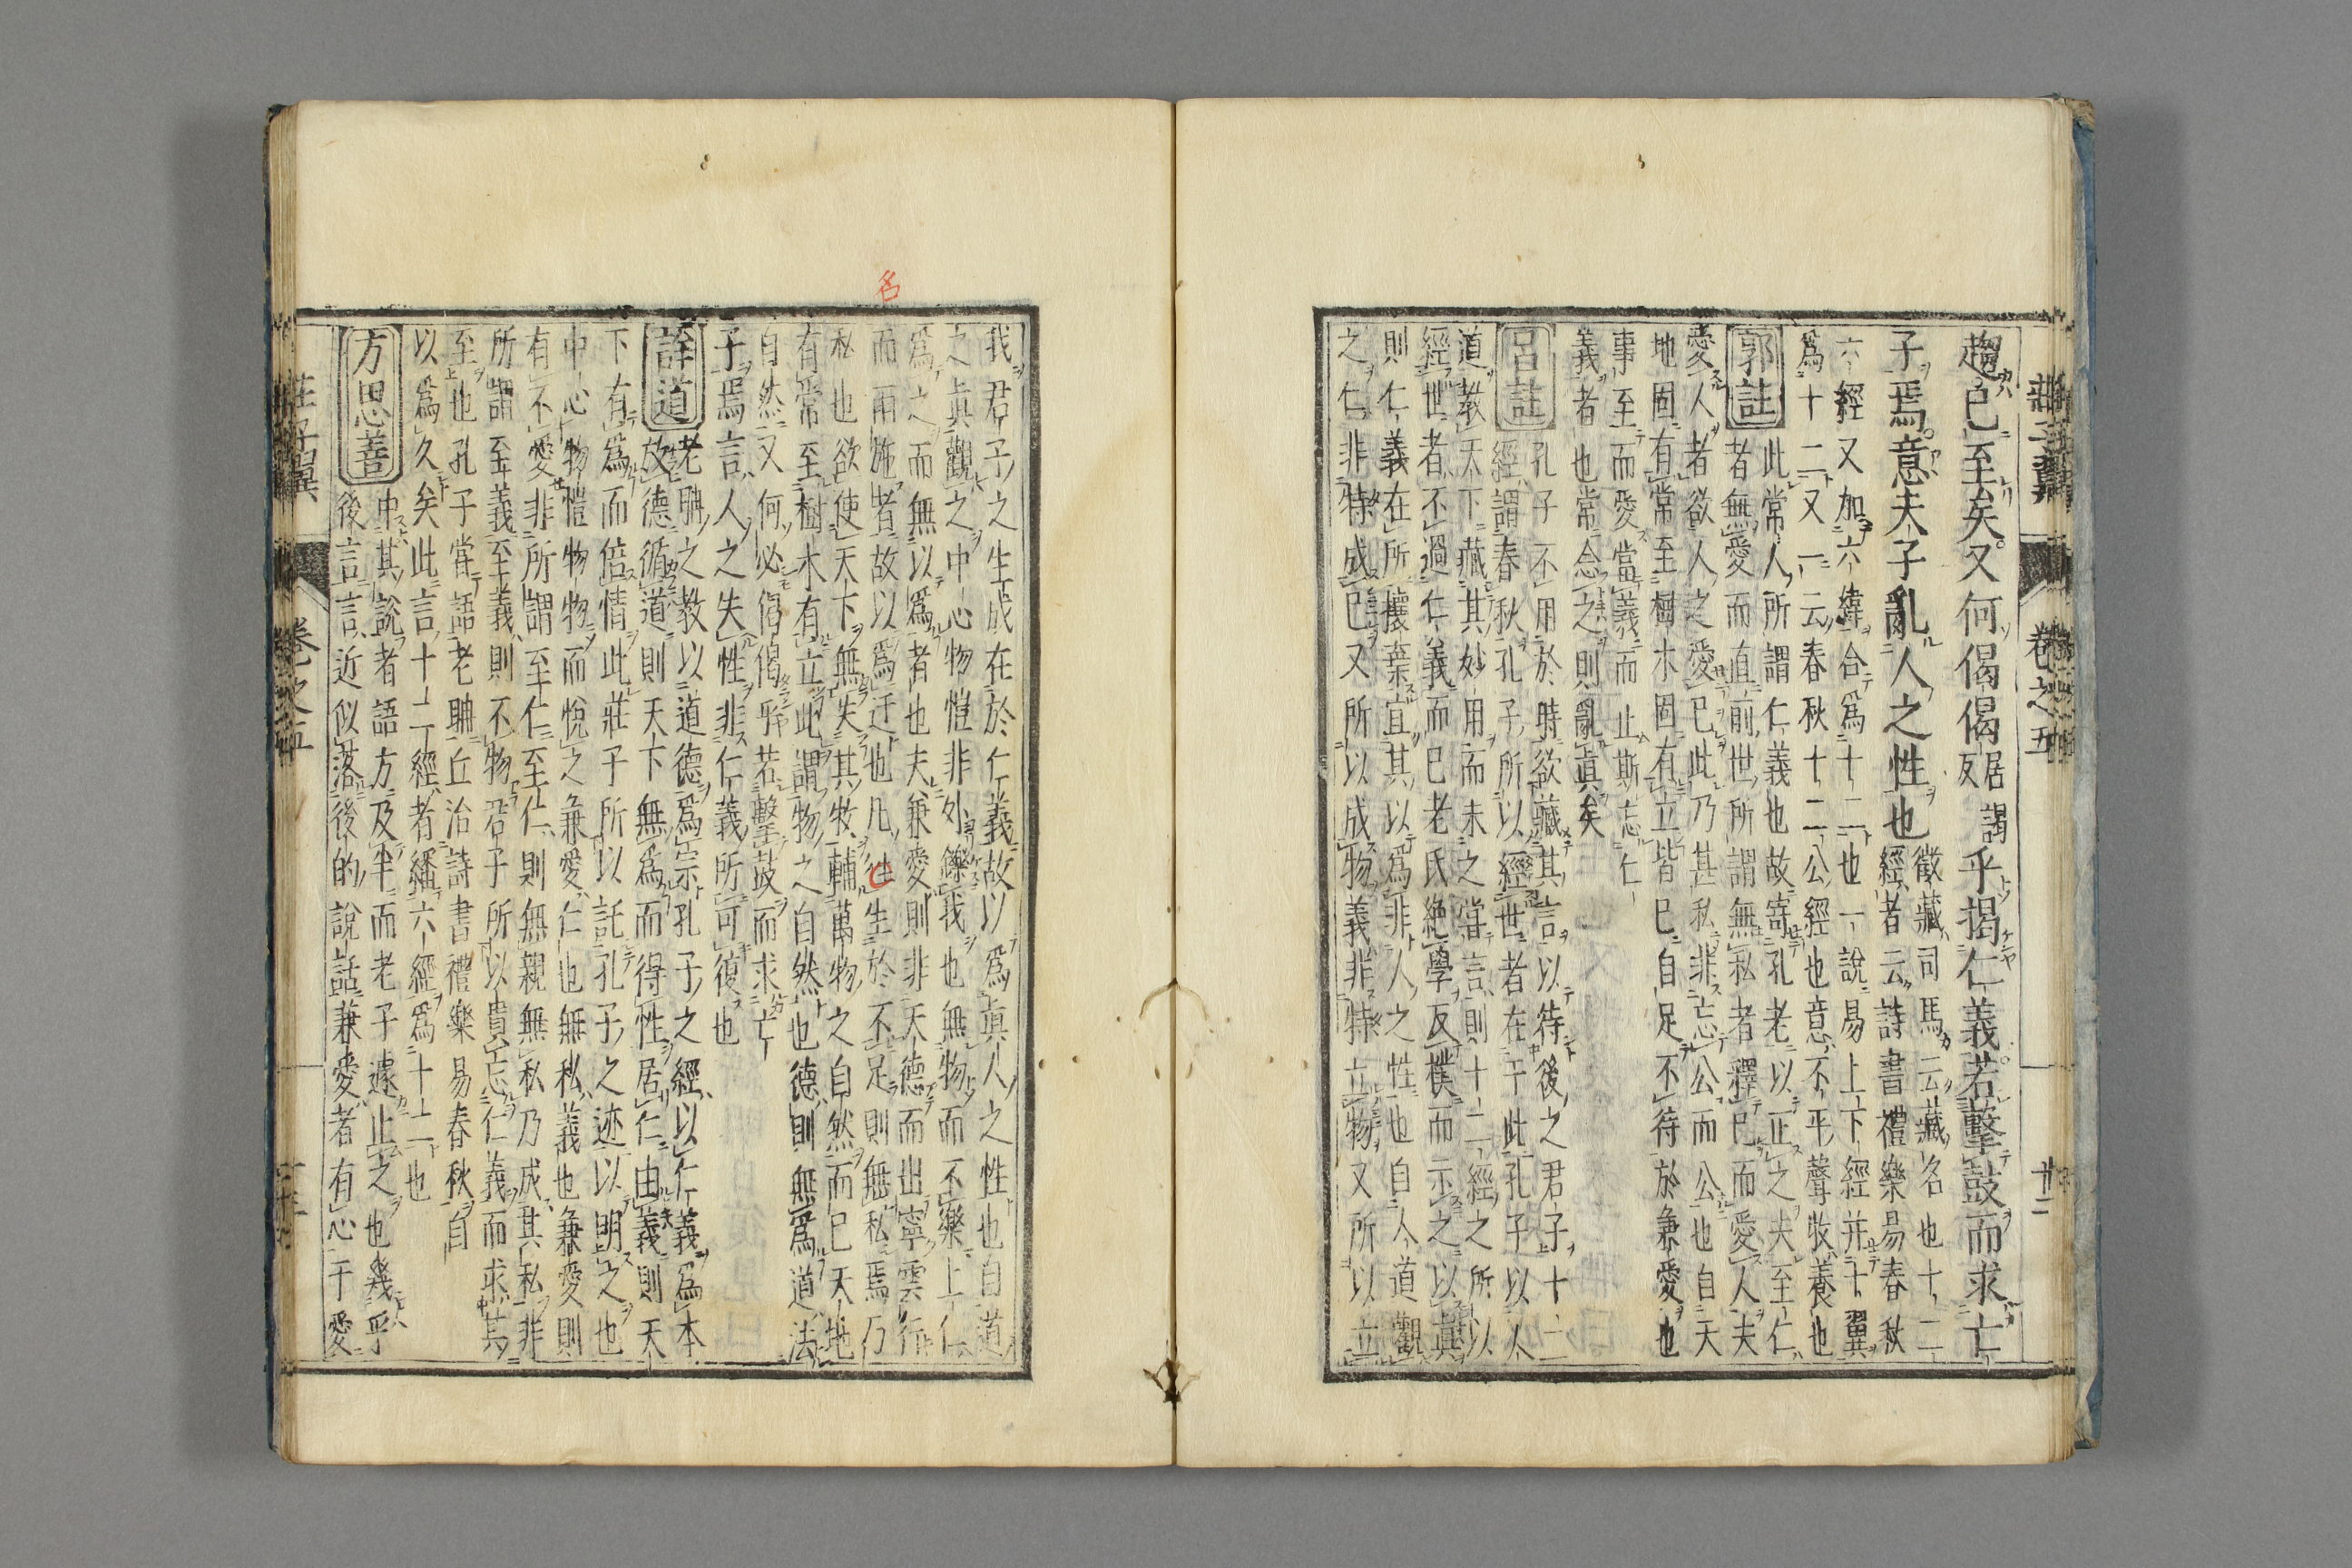 莊子翼 卷之五 廿二
趨已至矣又何偈偈居謁反乎揭仁義若擊鼓而求亡
子焉意夫子亂人之性也
徵藏司馬云藏名也十二
經者云詩書禮樂易春秋
六經又加六緯合爲十二也一說易上下經并十翼
爲十二又一云春秋十二公經也意不平聲牧養也
郭註
此常人所謂仁義也故寄孔老以正之夫至仁
者無愛而直前世所謂無私者釋已而愛人夫
愛人者欲人之愛已此乃甚私非忘公而公也自天
地固有常至樹木固有立皆已自足不待於兼愛也
事至而愛當義而止斯忘仁
義者也常念之則亂眞矣
呂註
孔子不用於時欲藏其言以待後之君子十二
經謂春秋孔子所以經世者在于此孔子以人
道教天下藏其妙用而未之嘗言則十二經之所以
經世者不過仁義而已老氏絕學反樸而示之以眞
則仁義在所攘棄宜其以爲非人之性也自人道觀
之仁非特成已又所以成物義非特立物又所以立
我君子之生成在於仁義故以爲眞人之性也自道
之眞觀之中心物愷非外鑠我也無物而不樂上仁
爲之而無以爲者也夫兼愛則非天德而出寧雲行
而雨施者故以爲迂也凡生於不足則無私焉乃
私也欲使天下無失其牧輔萬物之自然而已天地
有常至樹木有立此謂物之自然也德則無爲道法
自然又何必偈偈乎若擊鼓而求亡
子焉言人之失性非仁義所可復也
詳道
老聃之敎以道德爲宗孔子之經以仁義爲本
放德循道則天下無爲而得性居仁由義則天
下有爲而倍情此莊子所以託孔子之迹以明之也
中心物愷物物而悅之兼愛仁也無私義也兼愛則
有不愛非所謂至仁至仁則無親無私乃成其私非
所謂至義至義則不物君子所以貴忘仁義而求其
至也孔子嘗語老聃丘治詩書禮樂易春秋自
以爲久矣此言十二經者繙六經爲十二也
方思善
中其說者語方及半而老子遽止之也幾乎
後言言近似落後的說話兼愛者有心于愛
莊子翼 卷之五
名